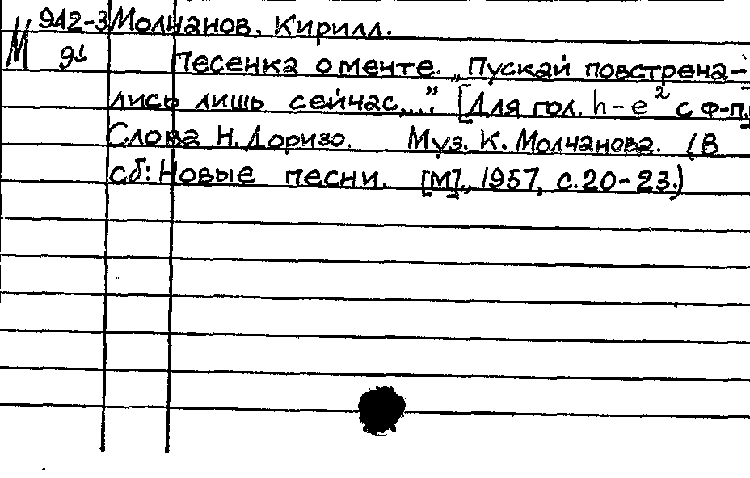 М 942-3 Молчанов, Кирилл.
91 Песенка о мечте. „Пускай повстреча-
лись лишь сейчас..." [Для гол. h-e² с ф-п.]
Слова Н. Доризо. Муз. К. Молчанова. (В
сб: Новые песни. [М]., 1957, с. 20-23.)